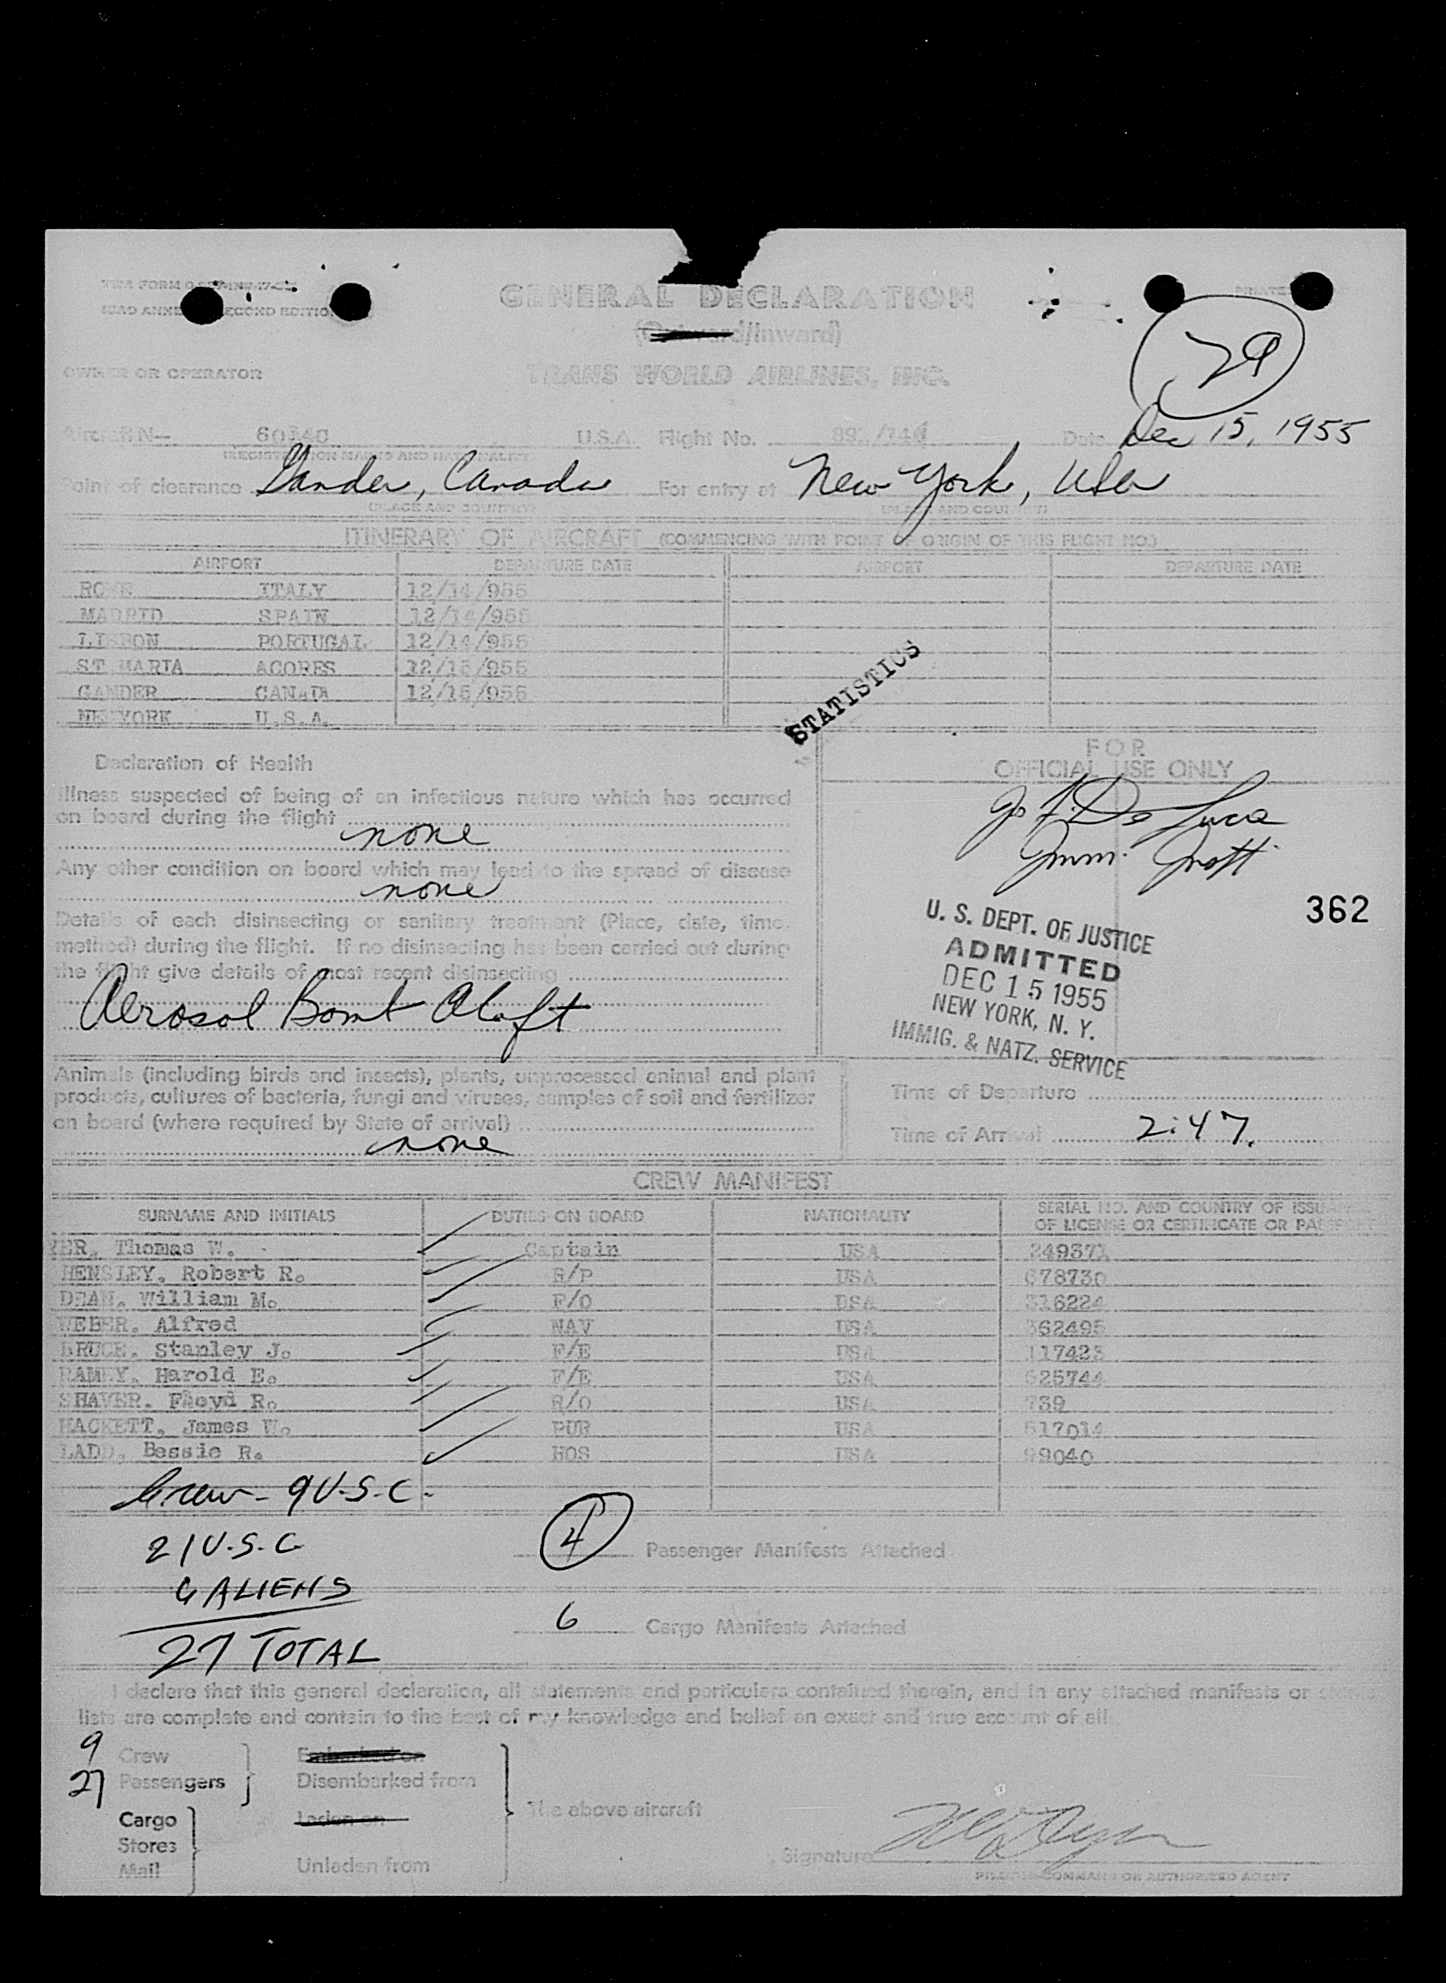 GENERAL DECLARATION
(Outward/Inward)
29
OWNER OR OPERATOR TRANS WORLD AIRLINES, INC.
Aircraft N— U.S.A. Flight No. Date Dec 15, 1955
(REGISTRATION MARKS AND NATIONALITY)
Point of clearance Gander, Canada For entry at New York, USA
(PLACE AND COUNTRY) (PLACE AND COUNTRY)
ITINERARY OF AIRCRAFT (COMMENCING WITH POINT OF ORIGIN OF THIS FLIGHT NO.)
AIRPORT DEPARTURE DATE AIRPORT DEPARTURE DATE
ROME ITALY 12/14/955
MADRID SPAIN 12/14/955
LISBON PORTUGAL 12/14/955
ST MARIA ACORES 12/15/955
GANDER CANADA 12/15/955
NEW YORK U.S.A.
STATISTICS
FOR
OFFICIAL USE ONLY
Declaration of Health
Illness suspected of being of an infectious nature which has occurred
on board during the flight
none
Any other condition on board which may lead to the spread of disease
none
Details of each disinsecting or sanitary treatment (Place, date, time,
method) during the flight. If no disinsecting has been carried out during
the flight give details of most recent disinsecting
Aerosol Bomb Aloft
De Luca
Imm.
362
U. S. DEPT. OF JUSTICE
ADMITTED
DEC 15 1955
NEW YORK, N. Y.
IMMIG. & NATZ. SERVICE
Animals (including birds and insects), plants, unprocessed animal and plant
products, cultures of bacteria, fungi and viruses, samples of soil and fertilizer
on board (where required by State of arrival)
none
Time of Departure
Time of Arrival 2:47.
CREW MANIFEST
SURNAME AND INITIALS DUTIES ON BOARD NATIONALITY SERIAL NO. AND COUNTRY OF ISSUANCE
OF LICENSE OR CERTIFICATE OR PASSPORT
YER, Thomas W. Captain USA 249371
HENSLEY, Robert R. USA 678730
DEAN, William M. F/O USA 316224
WEBER, Alfred NAV USA 362495
BRUCE, Stanley J. F/E USA 117423
RAMEY, Harold E. F/E USA 525744
SHAVER, Floyd R. R/O USA 739
HACKETT, James W. PUR USA 517014
LADD, Bessie R. HOS USA 99040
Crew - 9 U.S.C.
21 U.S.C
6 ALIENS
27 TOTAL
4 Passenger Manifests Attached
6 Cargo Manifests Attached
I declare that this general declaration, all statements and particulars contained therein, and in any attached manifests or
lists are complete and contain to the best of my knowledge and belief an exact and true account of all
9 Crew
27 Passengers
Embarked on
Disembarked from
Cargo
Stores
Mail
Laden on
Unladen from
The above aircraft
Signature
PILOT-IN-COMMAND OR AUTHORIZED AGENT